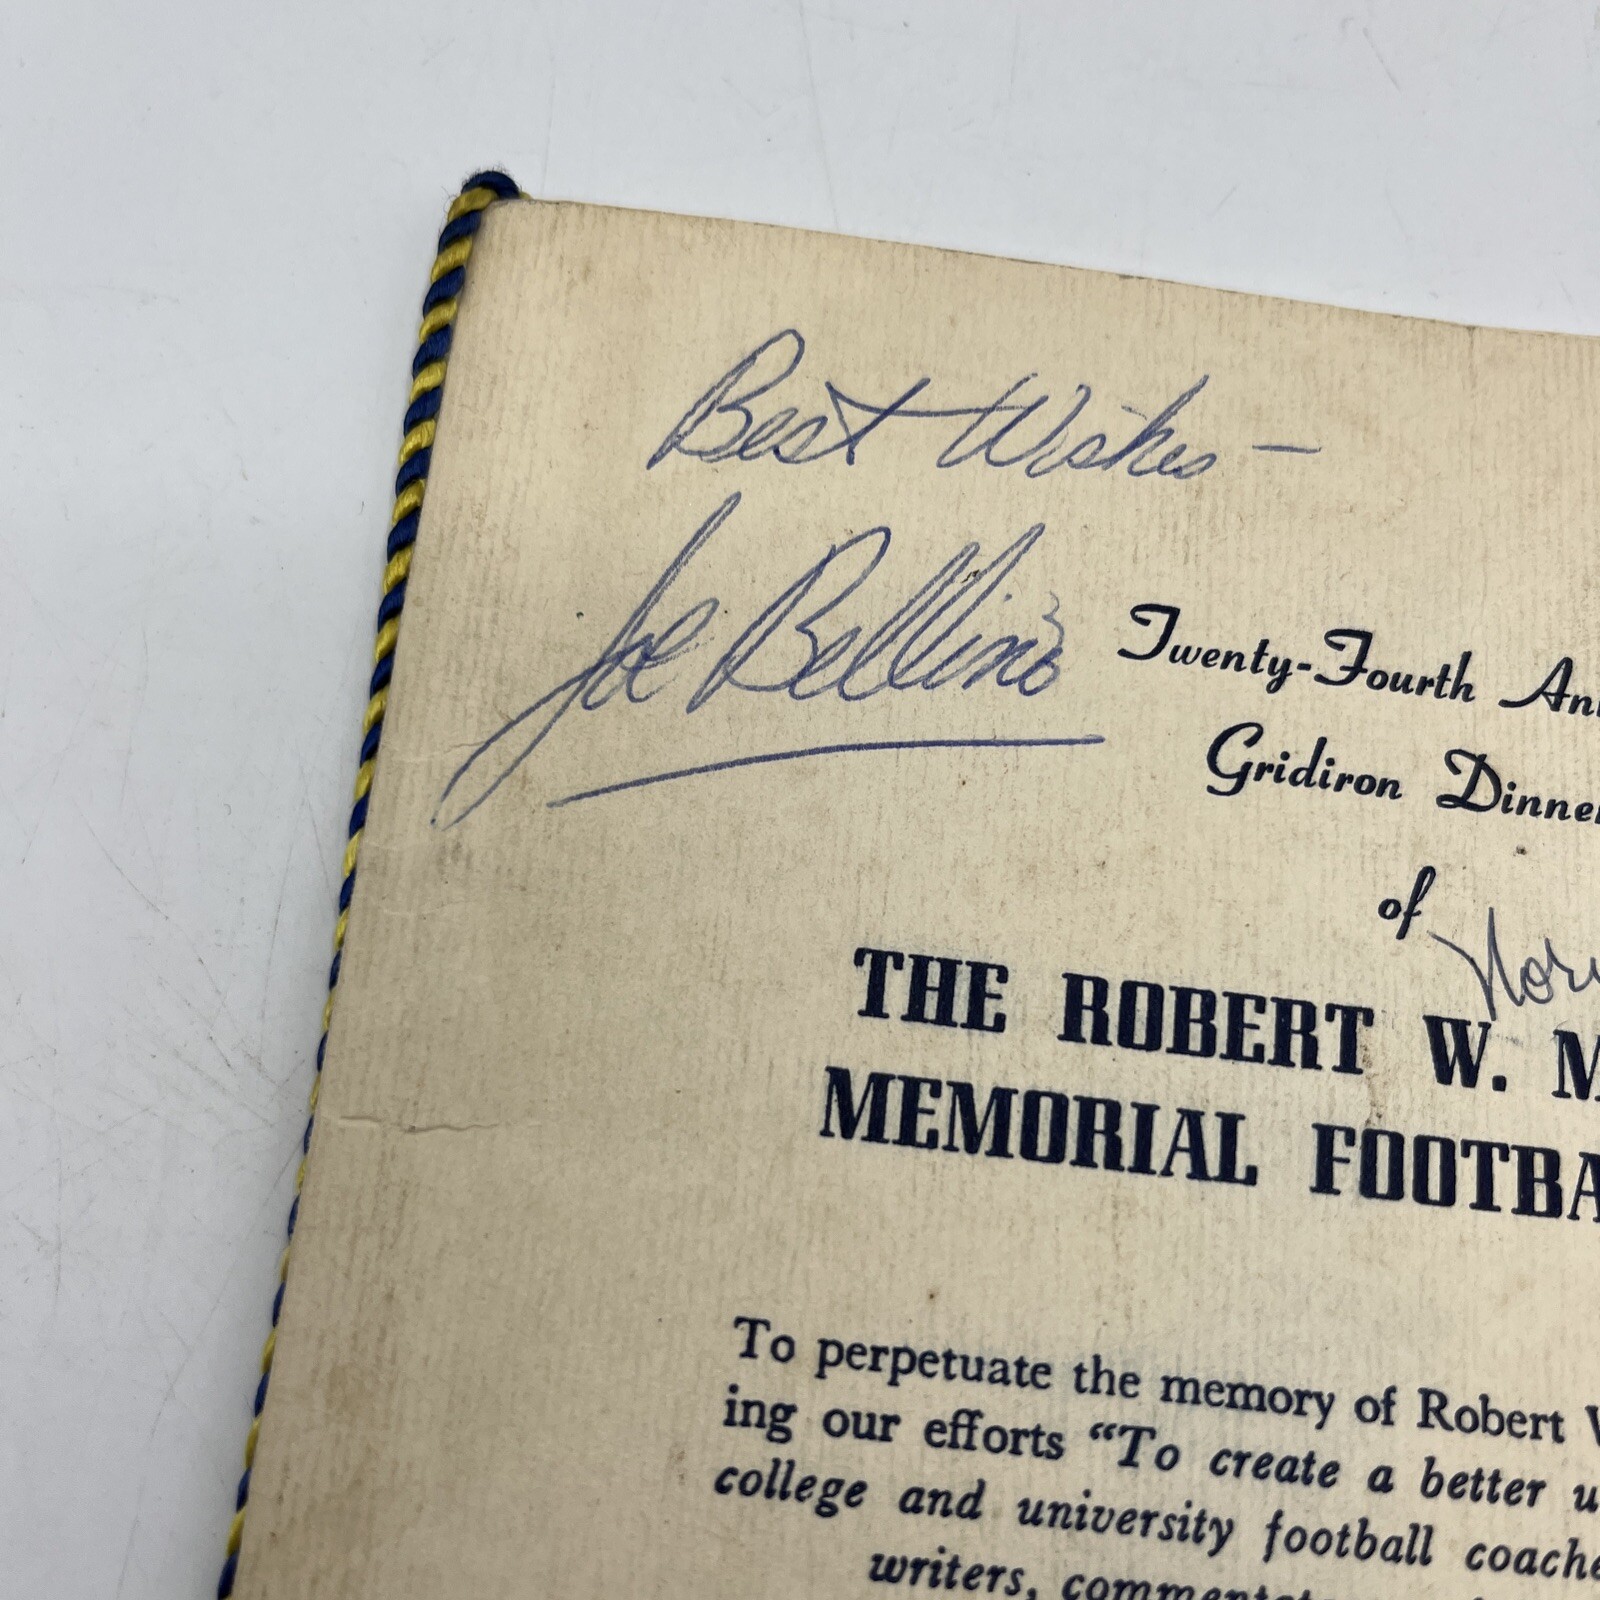 Best Wishes —
Joe Bellino
Twenty-Fourth
Gridiron Dinner
of
THE ROBERT W.
MEMORIAL
To perpetuate the memory of Robert
ing our efforts “To create a better
college and university football
writers,